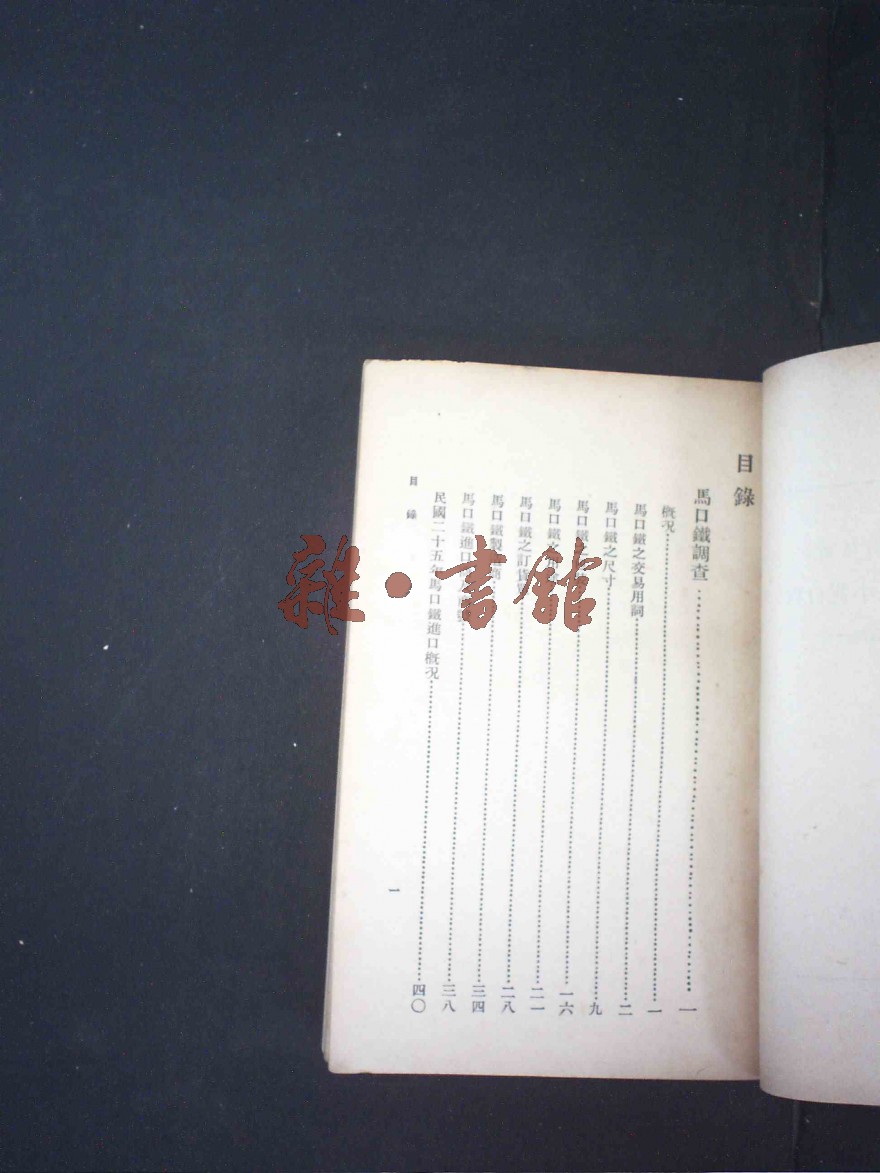 目錄
馬口鐵調查 一
概況 一
馬口鐵之交易用詞 二
馬口鐵之尺寸 九
馬口鐵 一六
馬口鐵之用 二一
馬口鐵之訂貨 二八
馬口鐵製 商 三四
馬口鐵進口 三八
民國二十五年馬口鐵進口概況 四〇
目錄
一
雜·書館